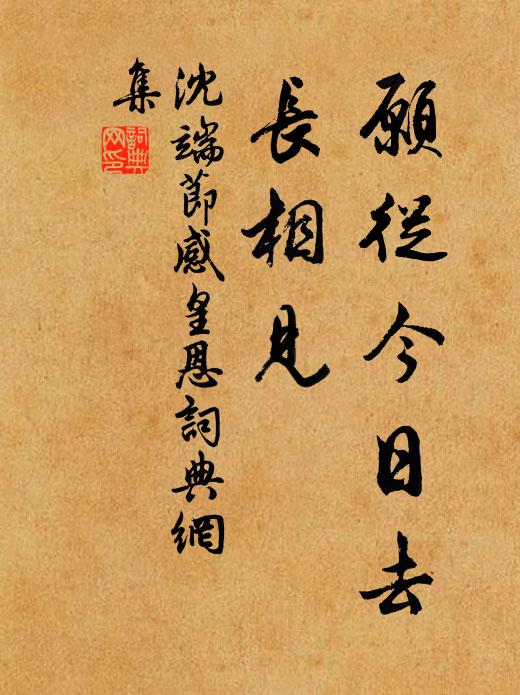 願從今日去
長相見
沈端節感皇恩詞典網
集
詞典
网印